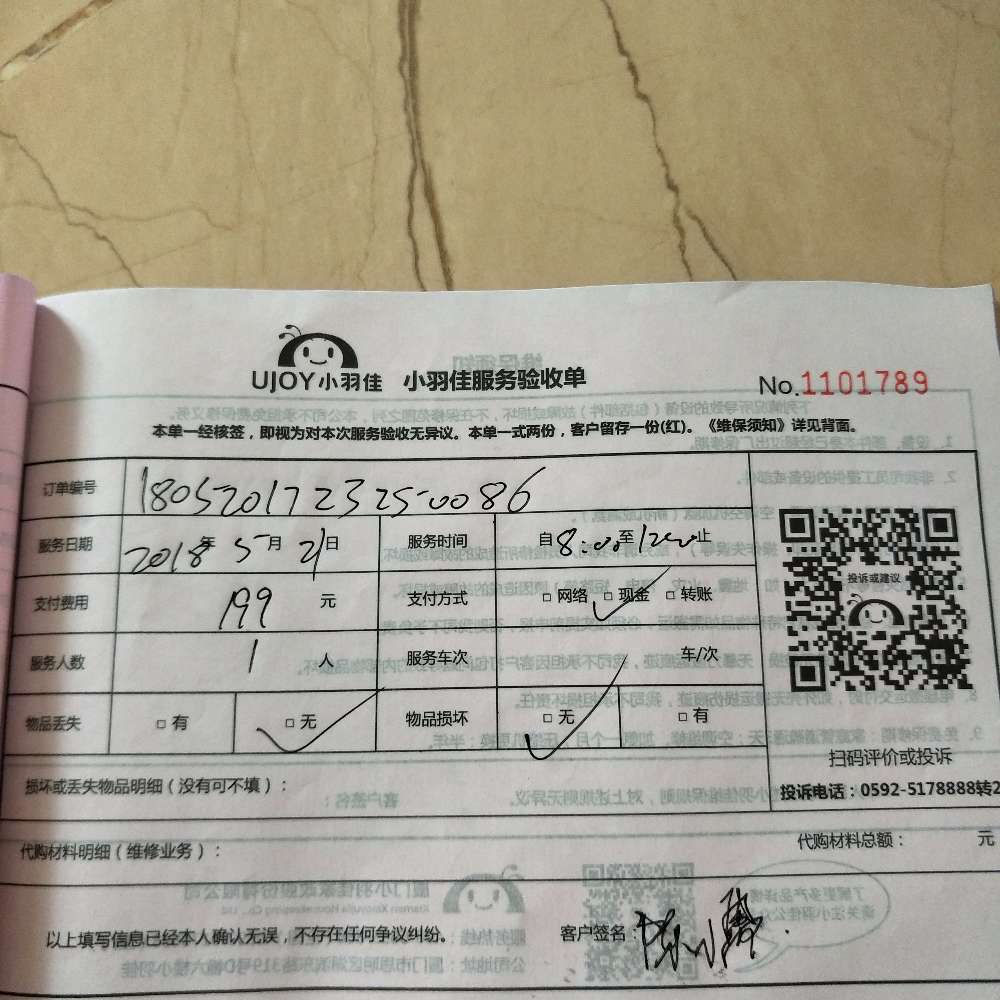 UJOY小羽佳 小羽佳服务验收单
No.1101789
本单一经核签，即视为对本次服务验收无异议。本单一式两份，客户留存一份(红)。《维保须知》详见背面。
订单编号 180520172325-0086
服务日期 2018年5月21日 服务时间 自8:00至1200止
支付费用 199元 支付方式 □网络 □现金 □转账
服务人数 1人 服务车次 车/次
物品丢失 □有 □无 物品损坏 □无 □有
投诉或建议
扫码评价或投诉
投诉电话：0592-5178888转2
损坏或丢失物品明细（没有可不填）：
代购材料明细（维修业务）： 代购材料总额： 元
以上填写信息已经本人确认无误，不存在任何争议纠纷。 客户签名：